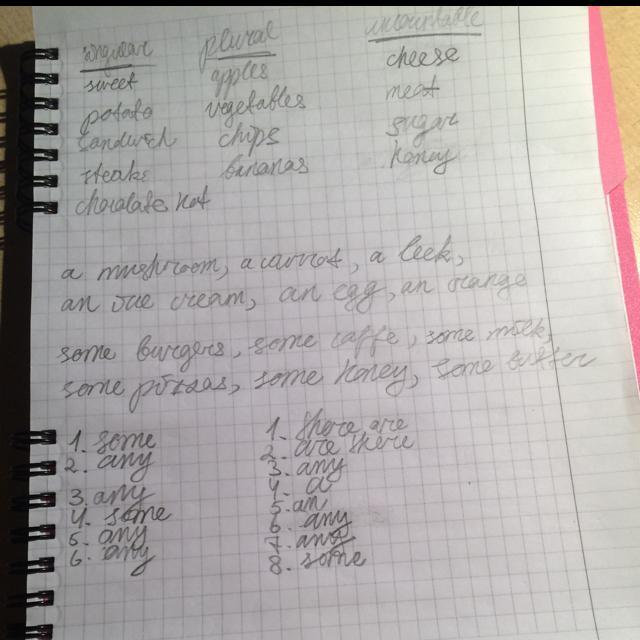 singular plural uncountable
sweet apples cheese
potato vegetables meat
sandwich chips sugar
steak bananas honey
chocolate hot
a mushroom, a carrot, a leek,
an ice cream, an egg, an orange
some burgers, some caffe, some milk,
some pizzas, some honey, some butter
1. some 1. there are
2. any 2. are there
3. any 3. any
4. some 4. a
5. any 5. an
6. any 6. any
7. any
8. some